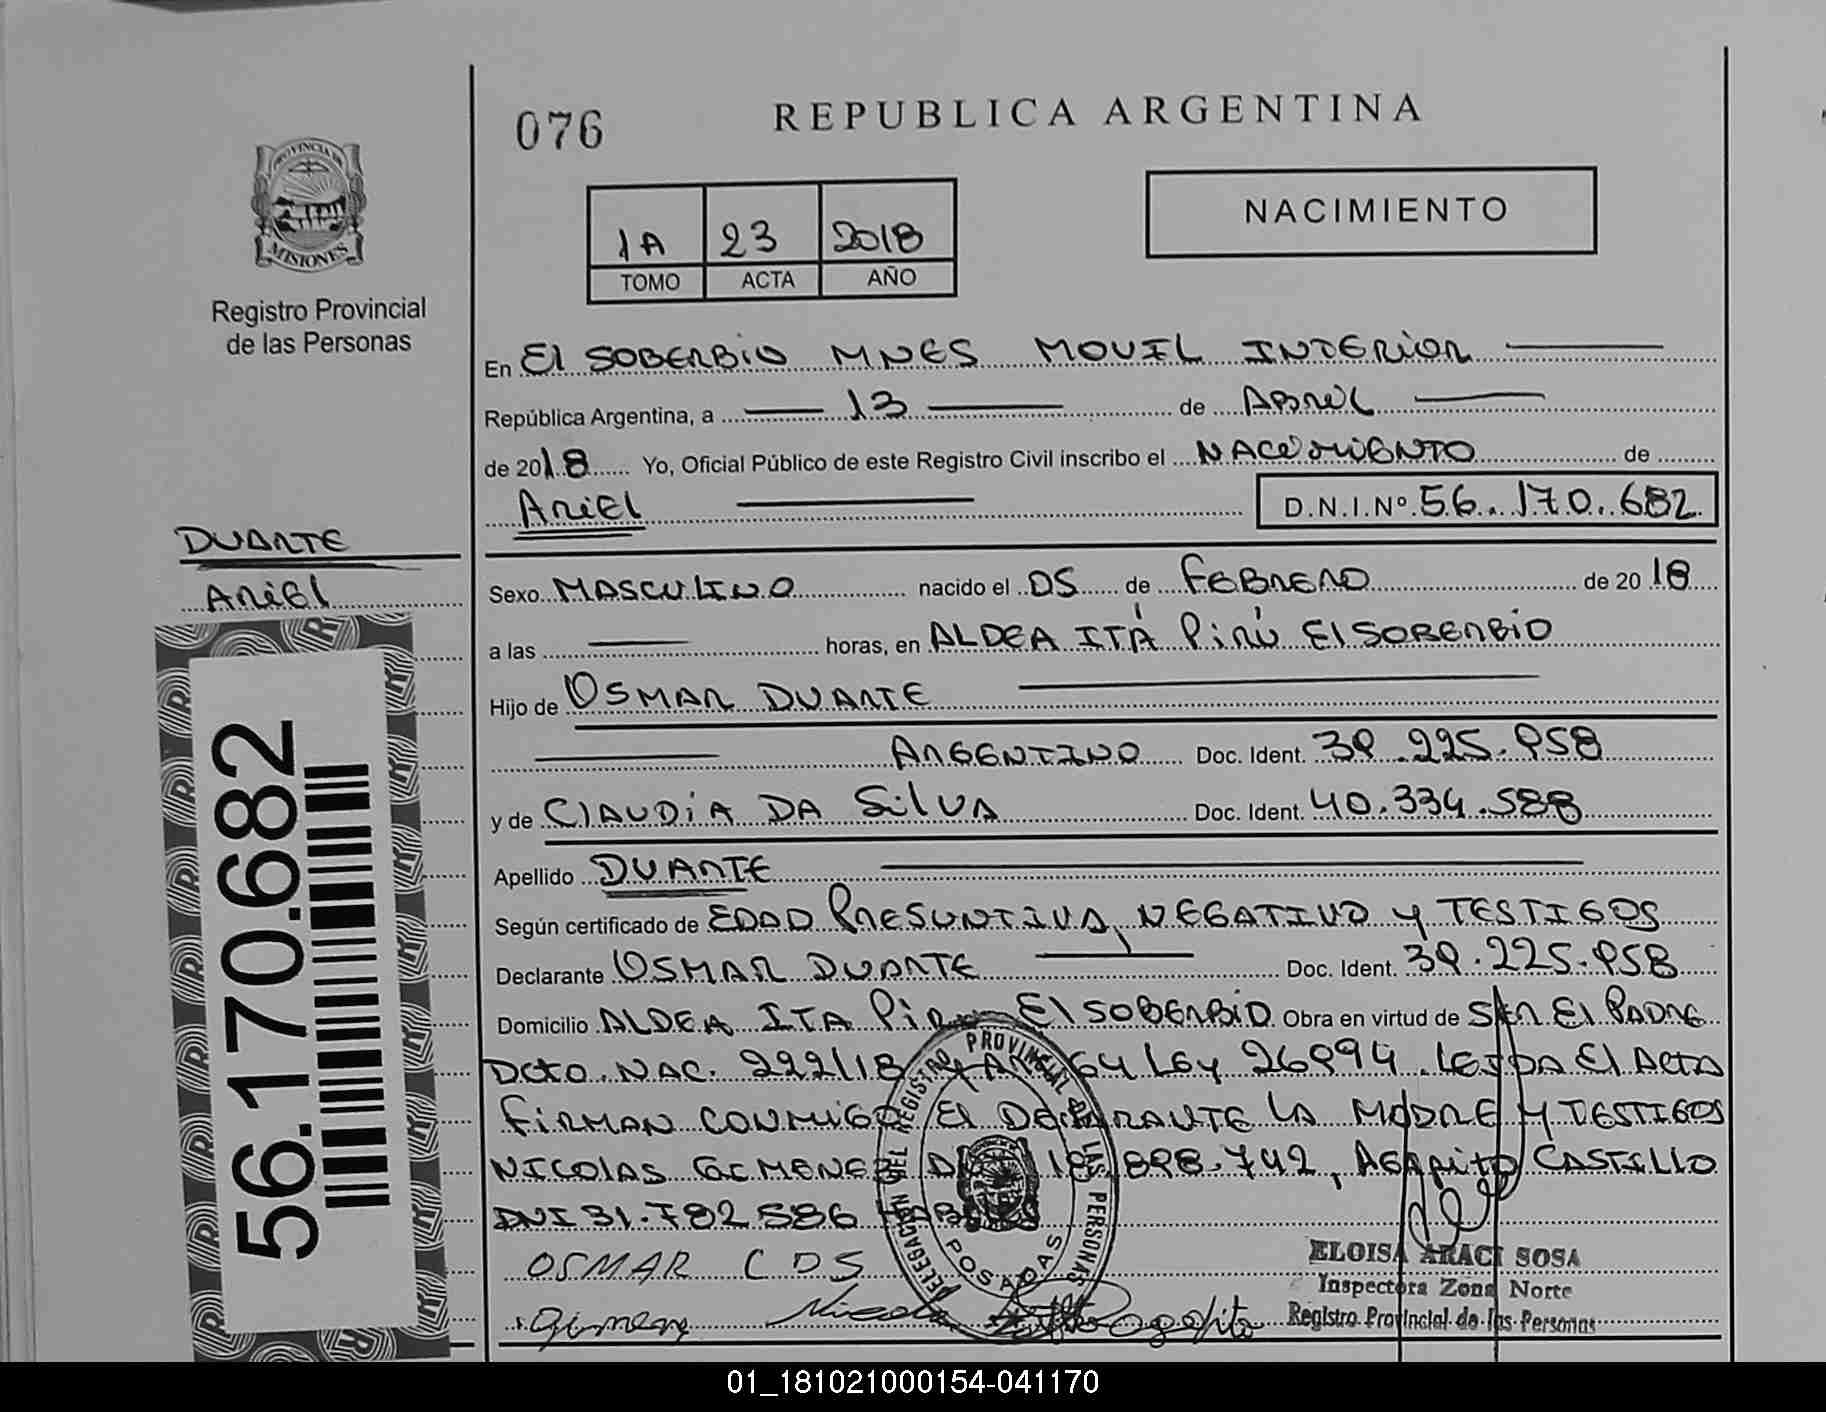 076
REPUBLICA ARGENTINA
PROVINCIA DE
MISIONES
Registro Provincial
de las Personas
NACIMIENTO
1A 23 2018
TOMO ACTA AÑO
En El SOBERBIO MNES MOVIL INTERIOR
República Argentina, a 13 de ABRIL
de 2018 Yo, Oficial Público de este Registro Civil inscribo el NACIMIENTO de
ARIEL D.N.I.Nº 56.170.682
DUARTE
ARIEL
Sexo MASCULINO nacido el 05 de FEBRERO de 2018
a las horas, en ALDEA ITÁ PIRÚ El SOBERBIO
Hijo de OSMAR DUARTE
ARGENTINO Doc. Ident. 39.225.958
y de CLAUDIA DA SILVA Doc. Ident. 40.334.588
Apellido DUARTE
Según certificado de EDAD PRESUNTIVA, NEGATIVO y TESTIGOS
Declarante OSMAR DUARTE Doc. Ident. 39.225.958
Domicilio ALDEA ITA El SOBERBIO Obra en virtud de SER El PADRE
DCTO. NAC. 222/18 64 LEY 26994. LEIDA El ACTA
FIRMAN CONMIGO El DECLARANTE LA MADRE Y TESTIGOS
NICOLAS GIMENEZ 18.898.742, AGAPITO CASTILLO
DNI 31.782.586
OSMAR C D S
Gimenez Nicolas Agapito
DELEGACION DEL REGISTRO PROVINCIAL DE LAS PERSONAS
POSADAS
ELOISA ARACI SOSA
Inspectora Zona Norte
Registro Provincial de las Personas
56.170.682
01_181021000154-041170